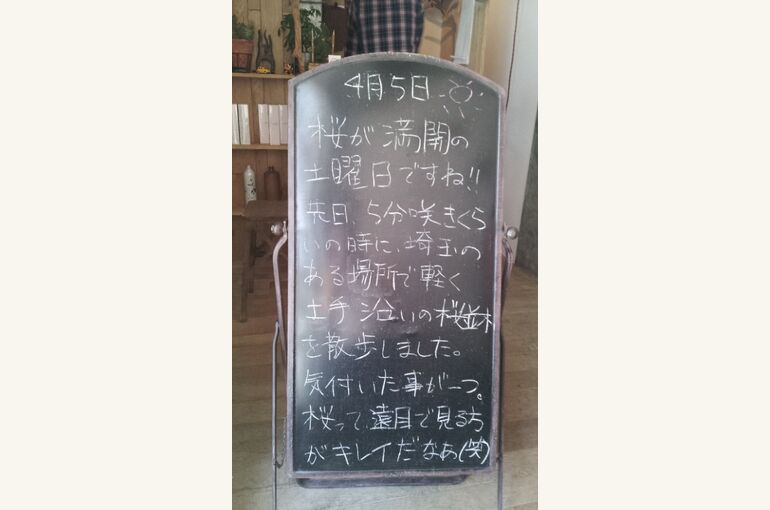 4月5日
桜が満開の
土曜日ですね!!
先日、5分咲きくら
いの時に、埼玉の
ある場所で軽く
土手沿いの桜並木
を散歩しました。
気付いた事が一つ。
桜って、遠目で見る方
がキレイだなあ(笑)